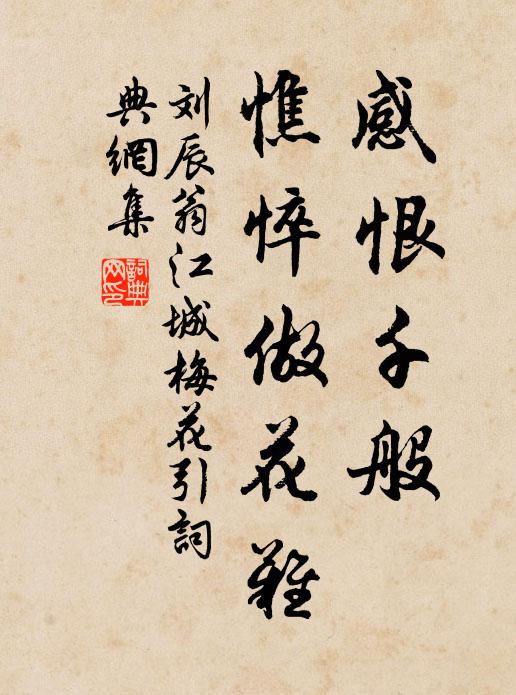 感恨千般
憔悴做花難
刘辰翁江城梅花引詞
典網集
詞典
网印